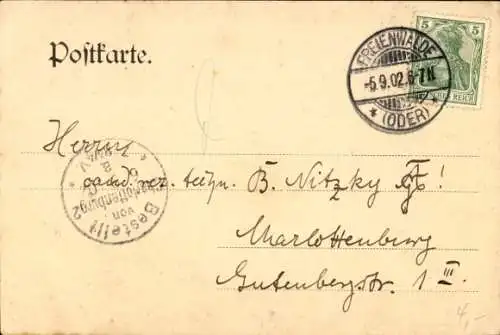 Postkarte.
5 5
FREIENWALDE
-5.9.02.6-7N
* (ODER) *
REICH
Herrn
cand. rer. techn. B. Nitzky
Charlottenburg
Gutenbergstr. 1 III.
Bestellt
von
Charlottenburg 2
4,-